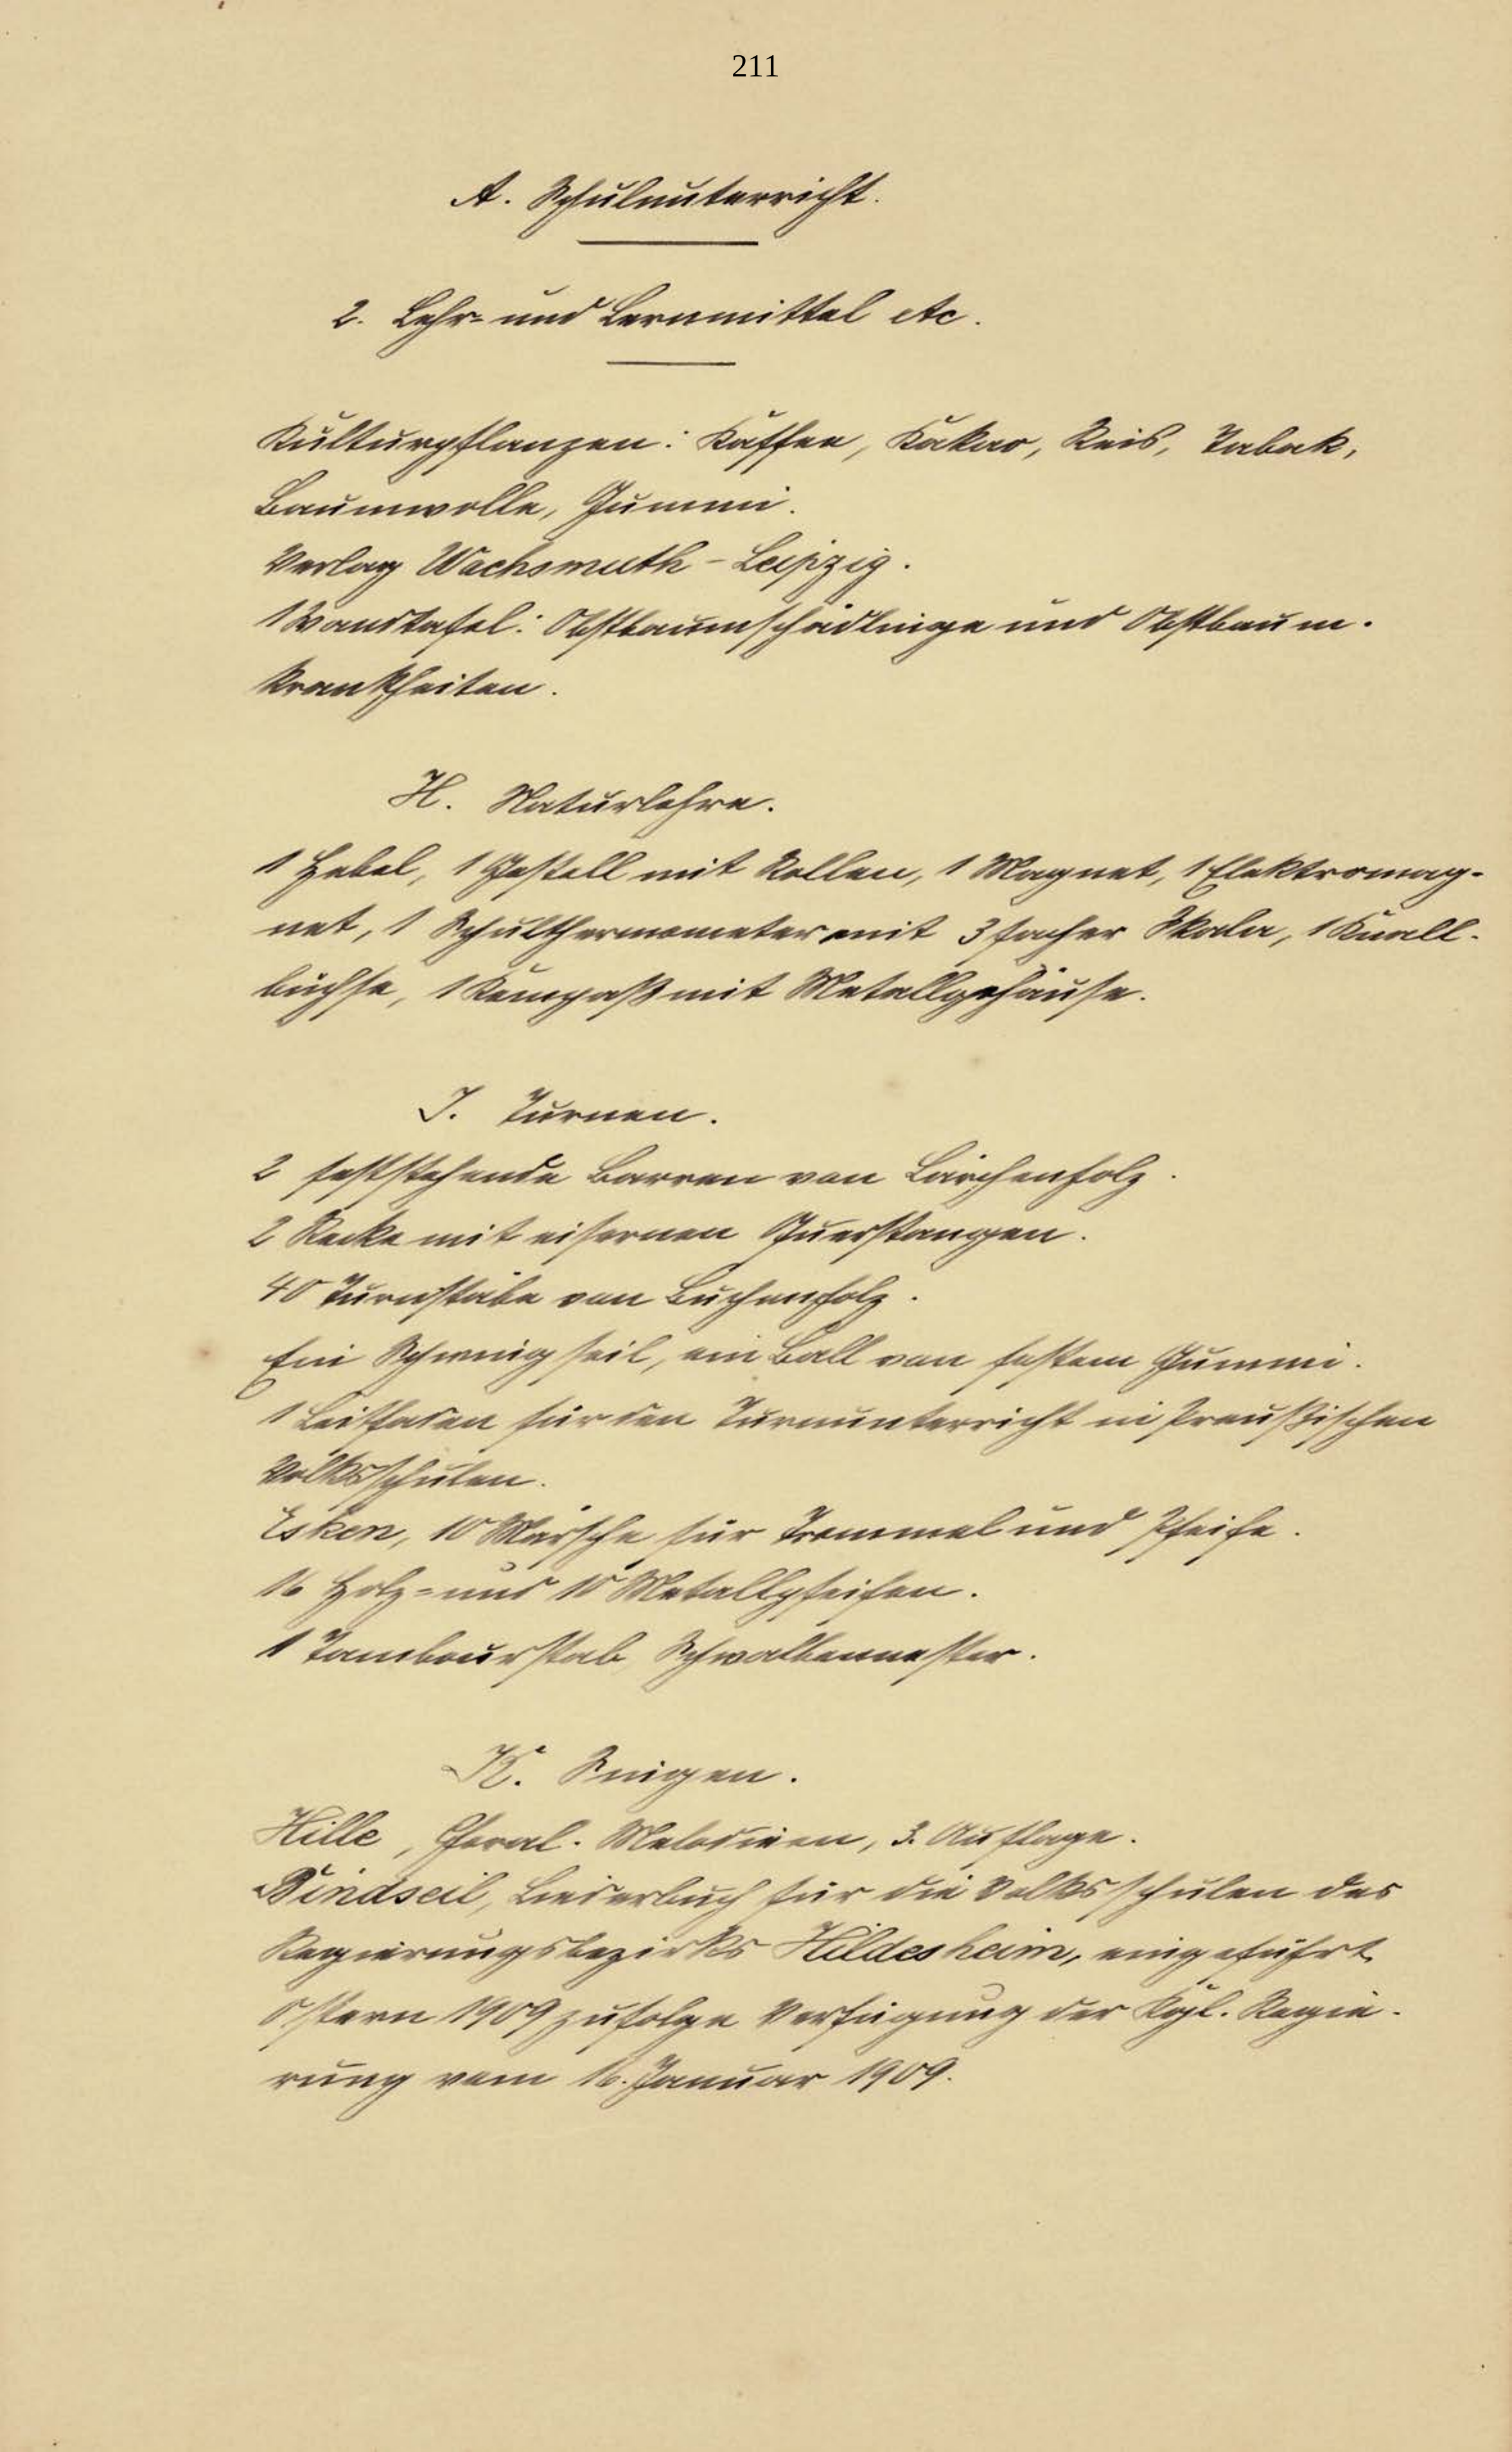 211
A. Schulunterricht.
2. Lehr- und Lernmittel etc.
Kulturpflanzen: Kaffee, Kakao, Reis, Tabak,
Baumwolle, Gummi.
Verlag Wachsmuth - Leipzig.
1 Wandtafel: Obstbaumschädlinge und Obstbaum-
krankheiten.
H. Naturlehre.
1 Hebel, 1 Gestell mit Rollen, 1 Magnet, 1 Elektromag-
net, 1 Schulthermometer mit 3 facher Skala, 1 Knall-
büchse, 1 Kompaß mit Metallgehäuse.
J. Turnen.
2 feststehende Barren von Lärchenholz.
2 Recke mit eisernen Querstangen.
40 Turnstäbe von Buchenholz.
Ein Schwingseil, ein Ball von festem Gummi.
1 Leitfaden für den Turnunterricht in Preußischen
Volksschulen.
Esken, 10 Märsche für Trommel und Pfeife.
16 Holz- und 10 Metallpfeifen.
1 Tambourstab Schwalbennester.
K. Singen.
Hille, Choral-Melodieen, 3. Auflage.
Bindseil, Liederbuch für die Volksschulen des
Regierungsbezirks Hildesheim, eingeführt
Ostern 1909 zufolge Verfügung der Kgl. Regie-
rung vom 16. Januar 1909.